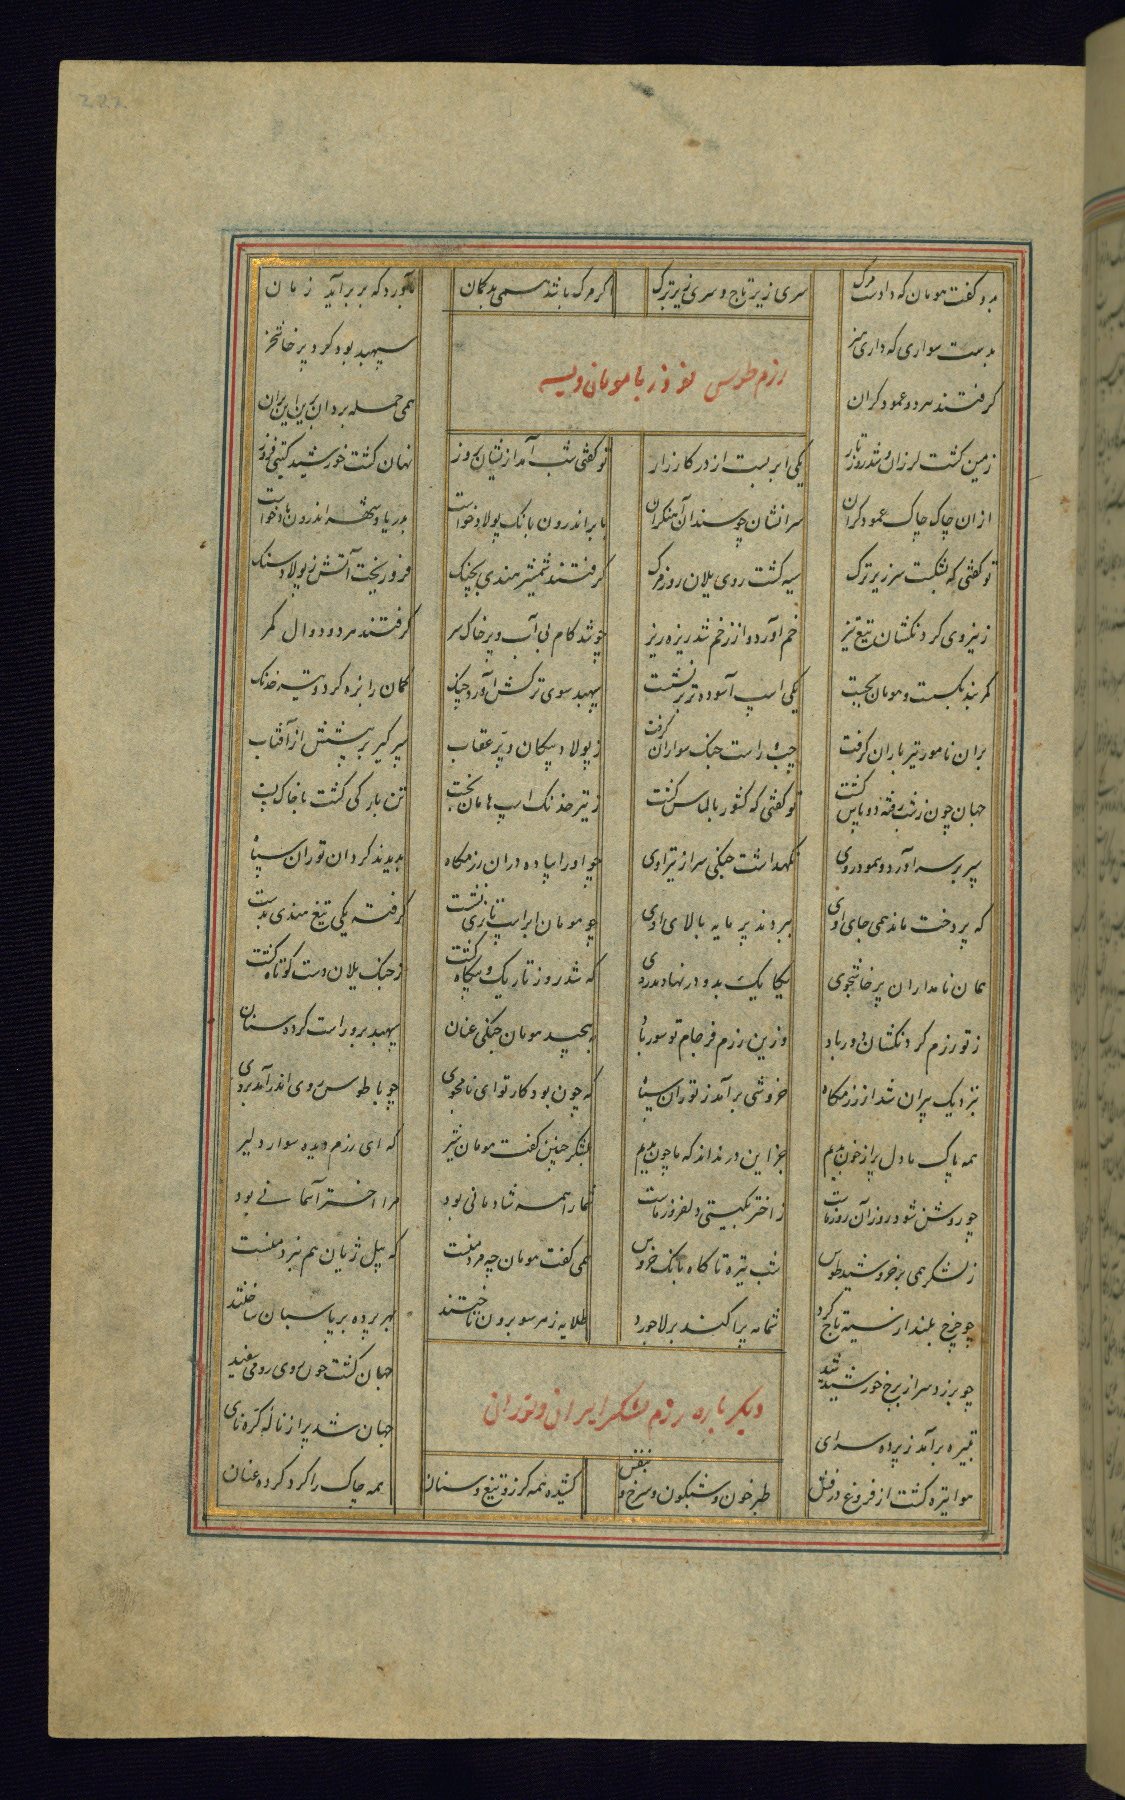 بدو گفت هومان که دادست مرگ سری زیر تاج و سری زیر ترگ اگر مرگ باشد همی بیگمان بآورد که بر برآید زمان
بدست سواری که داری هنر سپهبد بود گرد پرخاشخر
گرفتند هر دو عمود گران همی حمله برد آن برین این بران
رزم طوس نوذر با هومان ویسه
زمین گشت لرزان و شد روز تار یکی ابر بست از در کارزار تو گفتی شب آمد از یشان بروز نهان گشت خورشید گیتی فروز
از ان چاک چاک عمود گران سرانشان چو سندان آهنگران بابر اندرون بانک پولاد خواست بدریا و شهر اندرون باد خواست
تو گفتی که بشکست سر زیر ترگ سیه گشت روی یلان روز مرگ گرفتند شمشیر هندی بچنگ فرو ریخت آتش ز پولاد و سنگ
ز نیروی گردنکشان تیغ تیز خم آورد و از زخم شد ریزه ریز چو شد کام بی آب و پر خاک سر گرفتند هر دو دوال کمر
کمربند بگسست و هومان بجست یکی اسپ آسوده تر برنشست سپهبد سوی ترکش آورد چنگ کمان را بزه کرد و تیر خدنگ
بران نامور تیر باران گرفت چپ و راست جنگ سواران گرفت ز پولاد پیکان و پر عقاب سپر گیر بر پشتش از آفتاب
جهان چون ز شب رفته دو پاس گشت تو گفتی که کشور بالماس گشت ز تیر خدنک اسپ هامان بخست تن بارگی گشت با خاک پست
سپر بر سر آورد و ننمود روی نگهداشت جنگی سر از تیر اوی چو او را پیاده دران رزمگاه بدیدند گردان توران سپاه
که پردخت ماند همی جای اوی ببردند پر مایه بالای اوی چو هومان بر اسپ تازی نشست گرفته یکی تیغ هندی بدست
همان نامداران پرخاشجوی یکایک بدو در نهادند روی که شد روز تاریک و بیگاه گشت ز جنگ یلان دست کوتاه گشت
ز تو رزم گردنکشان دور باد وزین رزم فرجام تو سور باد بپیچید هومان جنگی عنان سپهبد برو راست کرده سنان
بنزدیک پیران شد از رزمگاه خروشی برآمد ز توران سپاه که چون بود کار تو ای نامجوی چو با طوس روی اندر آمد بروی
همه پاک ما دل پر از خون بدیم جز ایزد نداند که ما چون بدیم بلشکر چنین گفت هومان شیر که ای رزم دیده سوار دلیر
چو روشن شود روز آن روز ماست ز اختر بگیتی دلفروز ماست شما را همه شادمانی بود مرا اختر آسمانی بود
ز لشکر همی برخروشید طوس شب تیره تا گاه بانگ خروس همی گفت هومان چه مرد منست که پیل ژیان هم نبرد منست
چو چرخ بلند از شبه تاج کرد شمامه پراکند بر لاجورد طلایه ز هر سو برون تاختند بهر پرده بر پاسبان ساختند
دیگر باره رزم لشکر ایران و توران
چو برزد سر از برج خورشید شید جهان گشت چون روی رومی سفید
تبیره برآمد ز پرده سرای جهان شد پر از ناله کره نای
هوا تیره گشت از فروغ درفش طبرخون و شبگون و سرخ و بنفش کشیده همه گرز و تیغ و سنان همه چاک را گرد کرده عنان